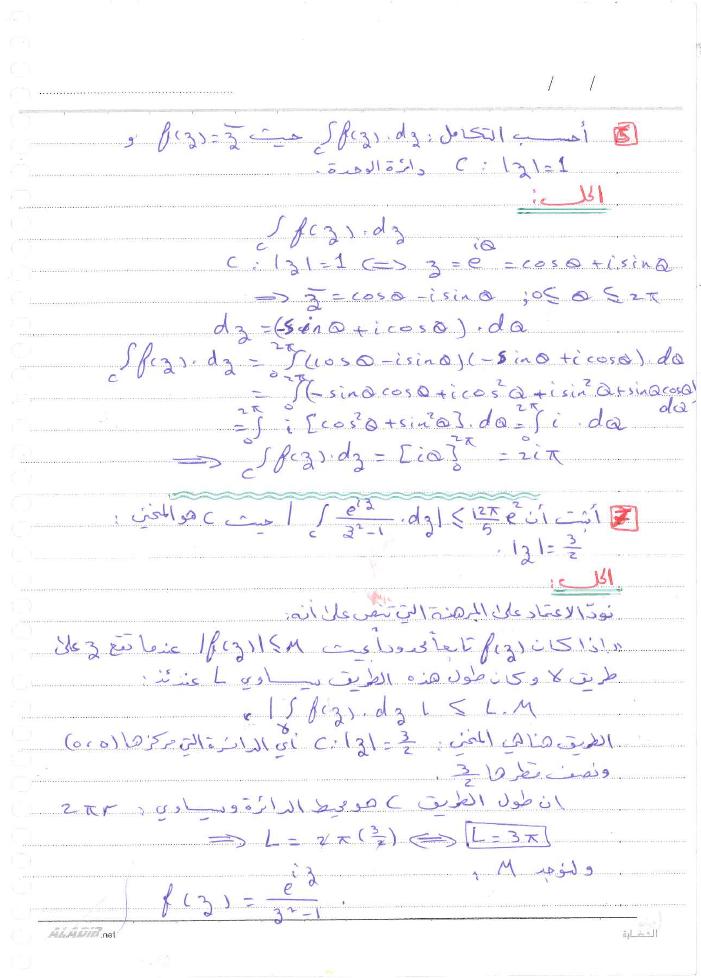 / /
5 أحسب التكامل: ∫_C f(z).dz حيث f(z)=z̄ و
C : |z|=1 دائرة الوحدة.
الحل:
∫_C f(z).dz
C : |z|=1 ⟺ z = e^{iθ} = cosθ + i sinθ
⟹ z̄ = cosθ - i sinθ ; 0 ≤ θ ≤ 2π
dz = (-sinθ + i cosθ).dθ
∫_C f(z).dz = ∫_0^{2π} (cosθ - i sinθ)(-sinθ + i cosθ).dθ
= ∫_0^{2π} (-sinθcosθ + i cos²θ + i sin²θ + sinθcosθ) dθ
= ∫_0^{2π} i [cos²θ + sin²θ].dθ = ∫_0^{2π} i .dθ
⟹ ∫_C f(z).dz = [iθ]_0^{2π} = 2iπ
7 أثبت أن |∫_C e^{iz}/(z²-1) .dz| ≤ 12π/5 e² حيث C هو المنحني :
|z| = 3/2 .
الحل:
نودّ الاعتماد على المبرهنة التي تنص على أنه:
"إذا كان f(z) تابعاً محدوداً بحيث |f(z)| ≤ M عندما تقع z على
طريق γ وكان طول هذه الطريق يساوي L عندئذ:
|∫_γ f(z).dz| ≤ L.M "
الطريق هنا هي المنحني: C : |z| = 3/2 أي الدائرة التي مركزها (0,0)
ونصف قطرها 3/2 .
ان طول الطريق C هو محيط الدائرة ويساوي: 2πr
⟹ L = 2π(3/2) ⟺ L = 3π
ولنوجد M :
f(z) = e^{iz}/(z²-1) .
ALADIB.net